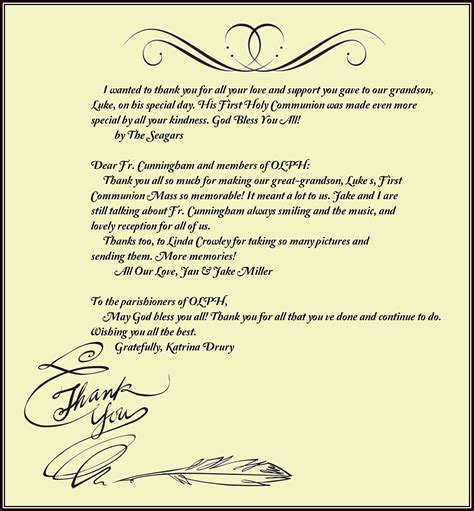 I wanted to thank you for all your love and support you gave to our grandson,
Luke, on his special day. His First Holy Communion was made even more
special by all your kindness. God Bless You All!
by The Seagars
Dear Fr. Cunningham and members of OLPH:
Thank you all so much for making our great-grandson, Luke s, First
Communion Mass so memorable! It meant a lot to us. Jake and I are
still talking about Fr. Cunningham always smiling and the music, and
lovely reception for all of us.
Thanks too, to Linda Crowley for taking so many pictures and
sending them. More memories!
All Our Love, Jan & Jake Miller
To the parishioners of OLPH,
May God bless you all! Thank you for all that you ve done and continue to do.
Wishing you all the best.
Gratefully, Katrina Drury
Thank
You